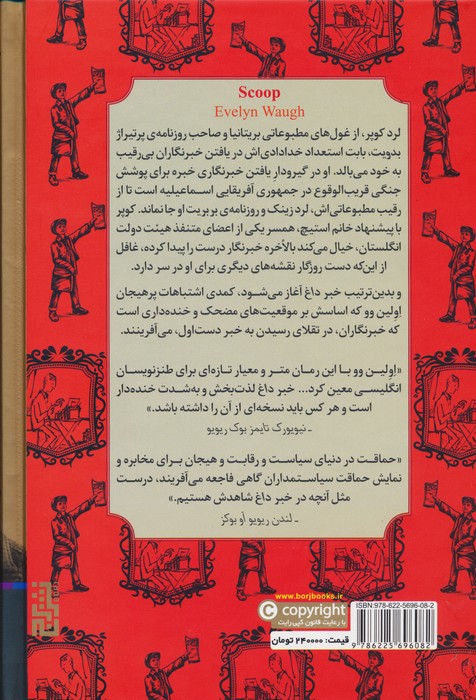 Scoop
Evelyn Waugh
لرد کوپر، از غول‌های مطبوعاتی بریتانیا و صاحب روزنامه‌ی پرتیراژ
بدویت، بابت استعداد خدادادی‌اش در یافتن خبرنگاران بی‌رقیب
به خود می‌بالد. او در گیرودارِ یافتن خبرنگاری خبره برای پوشش
جنگی قریب‌الوقوع در جمهوری آفریقایی اسماعیلیه است تا از
رقیب مطبوعاتی‌اش، لرد زینک و روزنامه‌ی بربریت او جا نماند. کوپر
با پیشنهاد خانم استیچ، همسر یکی از اعضای متنفذ هیئت دولت
انگلستان، خیال می‌کند بالأخره خبرنگار درست را پیدا کرده، غافل
از این‌که دست روزگار نقشه‌های دیگری برای او در سر دارد.
و بدین‌ترتیب خبر داغ آغاز می‌شود، کمدی اشتباهات پرهیجان
اِولین وو که اساسش بر موقعیت‌های مضحک و خنده‌داری است
که خبرنگاران، در تقلای رسیدن به خبر دست‌اول، می‌آفرینند.
«اِولین وو با این رمان متر و معیار تازه‌ای برای طنزنویسان
انگلیسی معین کرد... خبر داغ لذت‌بخش و به‌شدت خنده‌دار
است و هر کس باید نسخه‌ای از آن را داشته باشد.»
ـ نیویورک تایمز بوک ریویو
«حماقت در دنیای سیاست و رقابت و هیجان برای مخابره و
نمایش حماقت سیاستمداران گاهی فاجعه می‌آفریند، درست
مثل آنچه در خبر داغ شاهدش هستیم.»
ـ لندن ریویو آو بوکز
www.borjbooks.ir
© copyright
با رعایت قانون کپی‌رایت
قیمت: ۲۴۰۰۰۰ تومان
ISBN:978-622-5696-08-2
9 786225 696082